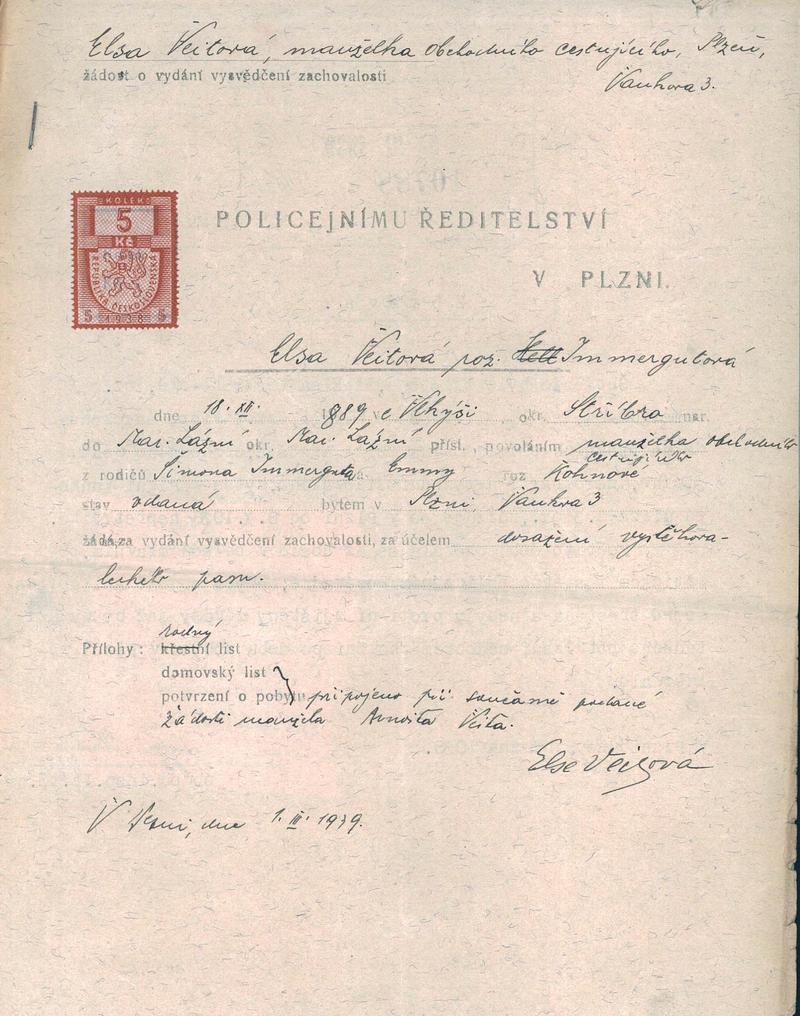 Elsa Veitová, manželka obchodního cestujícího, Plzeň,
žádost o vydání vysvědčení zachovalosti
Vanhova 3.
KOLEK
5
Kč
REPUBLIKA ČESKOSLOVENSKÁ
5 1938 5
POLICEJNÍMU ŘEDITELSTVÍ
V PLZNI.
Elsa Veitová roz. Immergutová
dne 18. XII. 1889 v okr. Stříbro nar.
do Mar. Lázní okr. Mar. Lázní přísl., povoláním manželka obchodního
cestujícího
z rodičů Šimona Immerguta a Emmy roz Kohnové
stav vdaná bytem v Plzni, Vanhova 3
žádá za vydání vysvědčení zachovalosti, za účelem dosažení vystěhova-
leckého pasu.
rodný
Přílohy: křestní list
domovský list
potvrzení o pobytu připojeno při současně podané
žádosti manžela Arnošta Veita.
Else Veitová
V Plzni, dne 1. III. 1939.